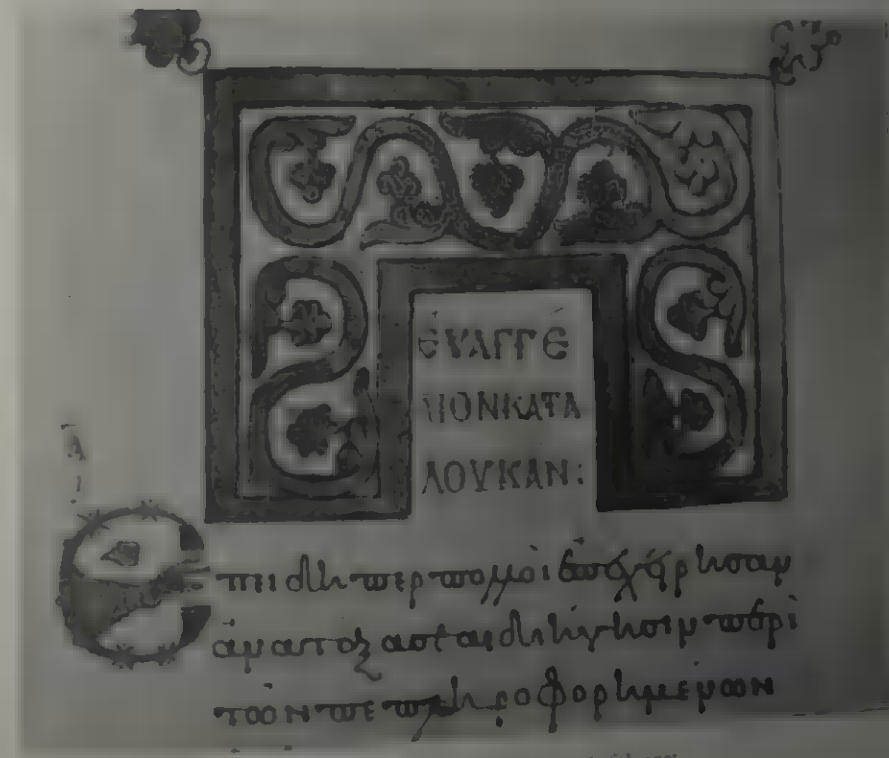 ΕΥΑΓΓΕ
ΛΙΟΝ ΚΑΤΑ
ΛΟΥΚΑΝ:
Ἐπειδὴ περ πολλοὶ ἐπεχείρησαν
ἀνατάξασθαι διήγησιν περὶ
τῶν πεπληροφορημένων